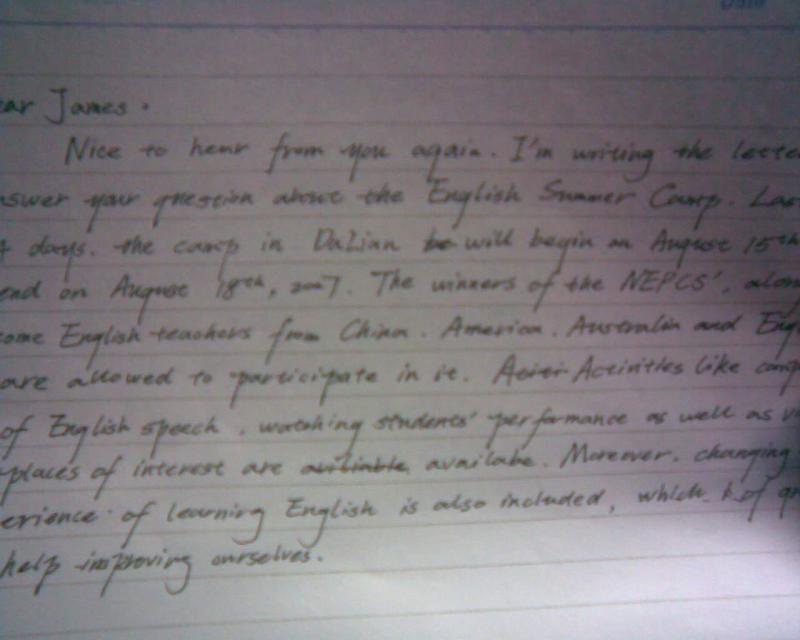 Date
ear James.
Nice to hear from you again. I'm writing the lette
nswer your question about the English Summer Camp. Las
4 days. the camp in DaLian be will begin on August 15th
end on August 18th, 2007. The winners of the NEPCS', alon
ome English teachers from China. America. Australia and Eng
are allowed to participate in it. Activi Activities like comp
of English speech, watching students' performance as well as vi
places of interest are availabe. Moreover, changing
erience of learning English is also included, which of gr
help improving ourselves.